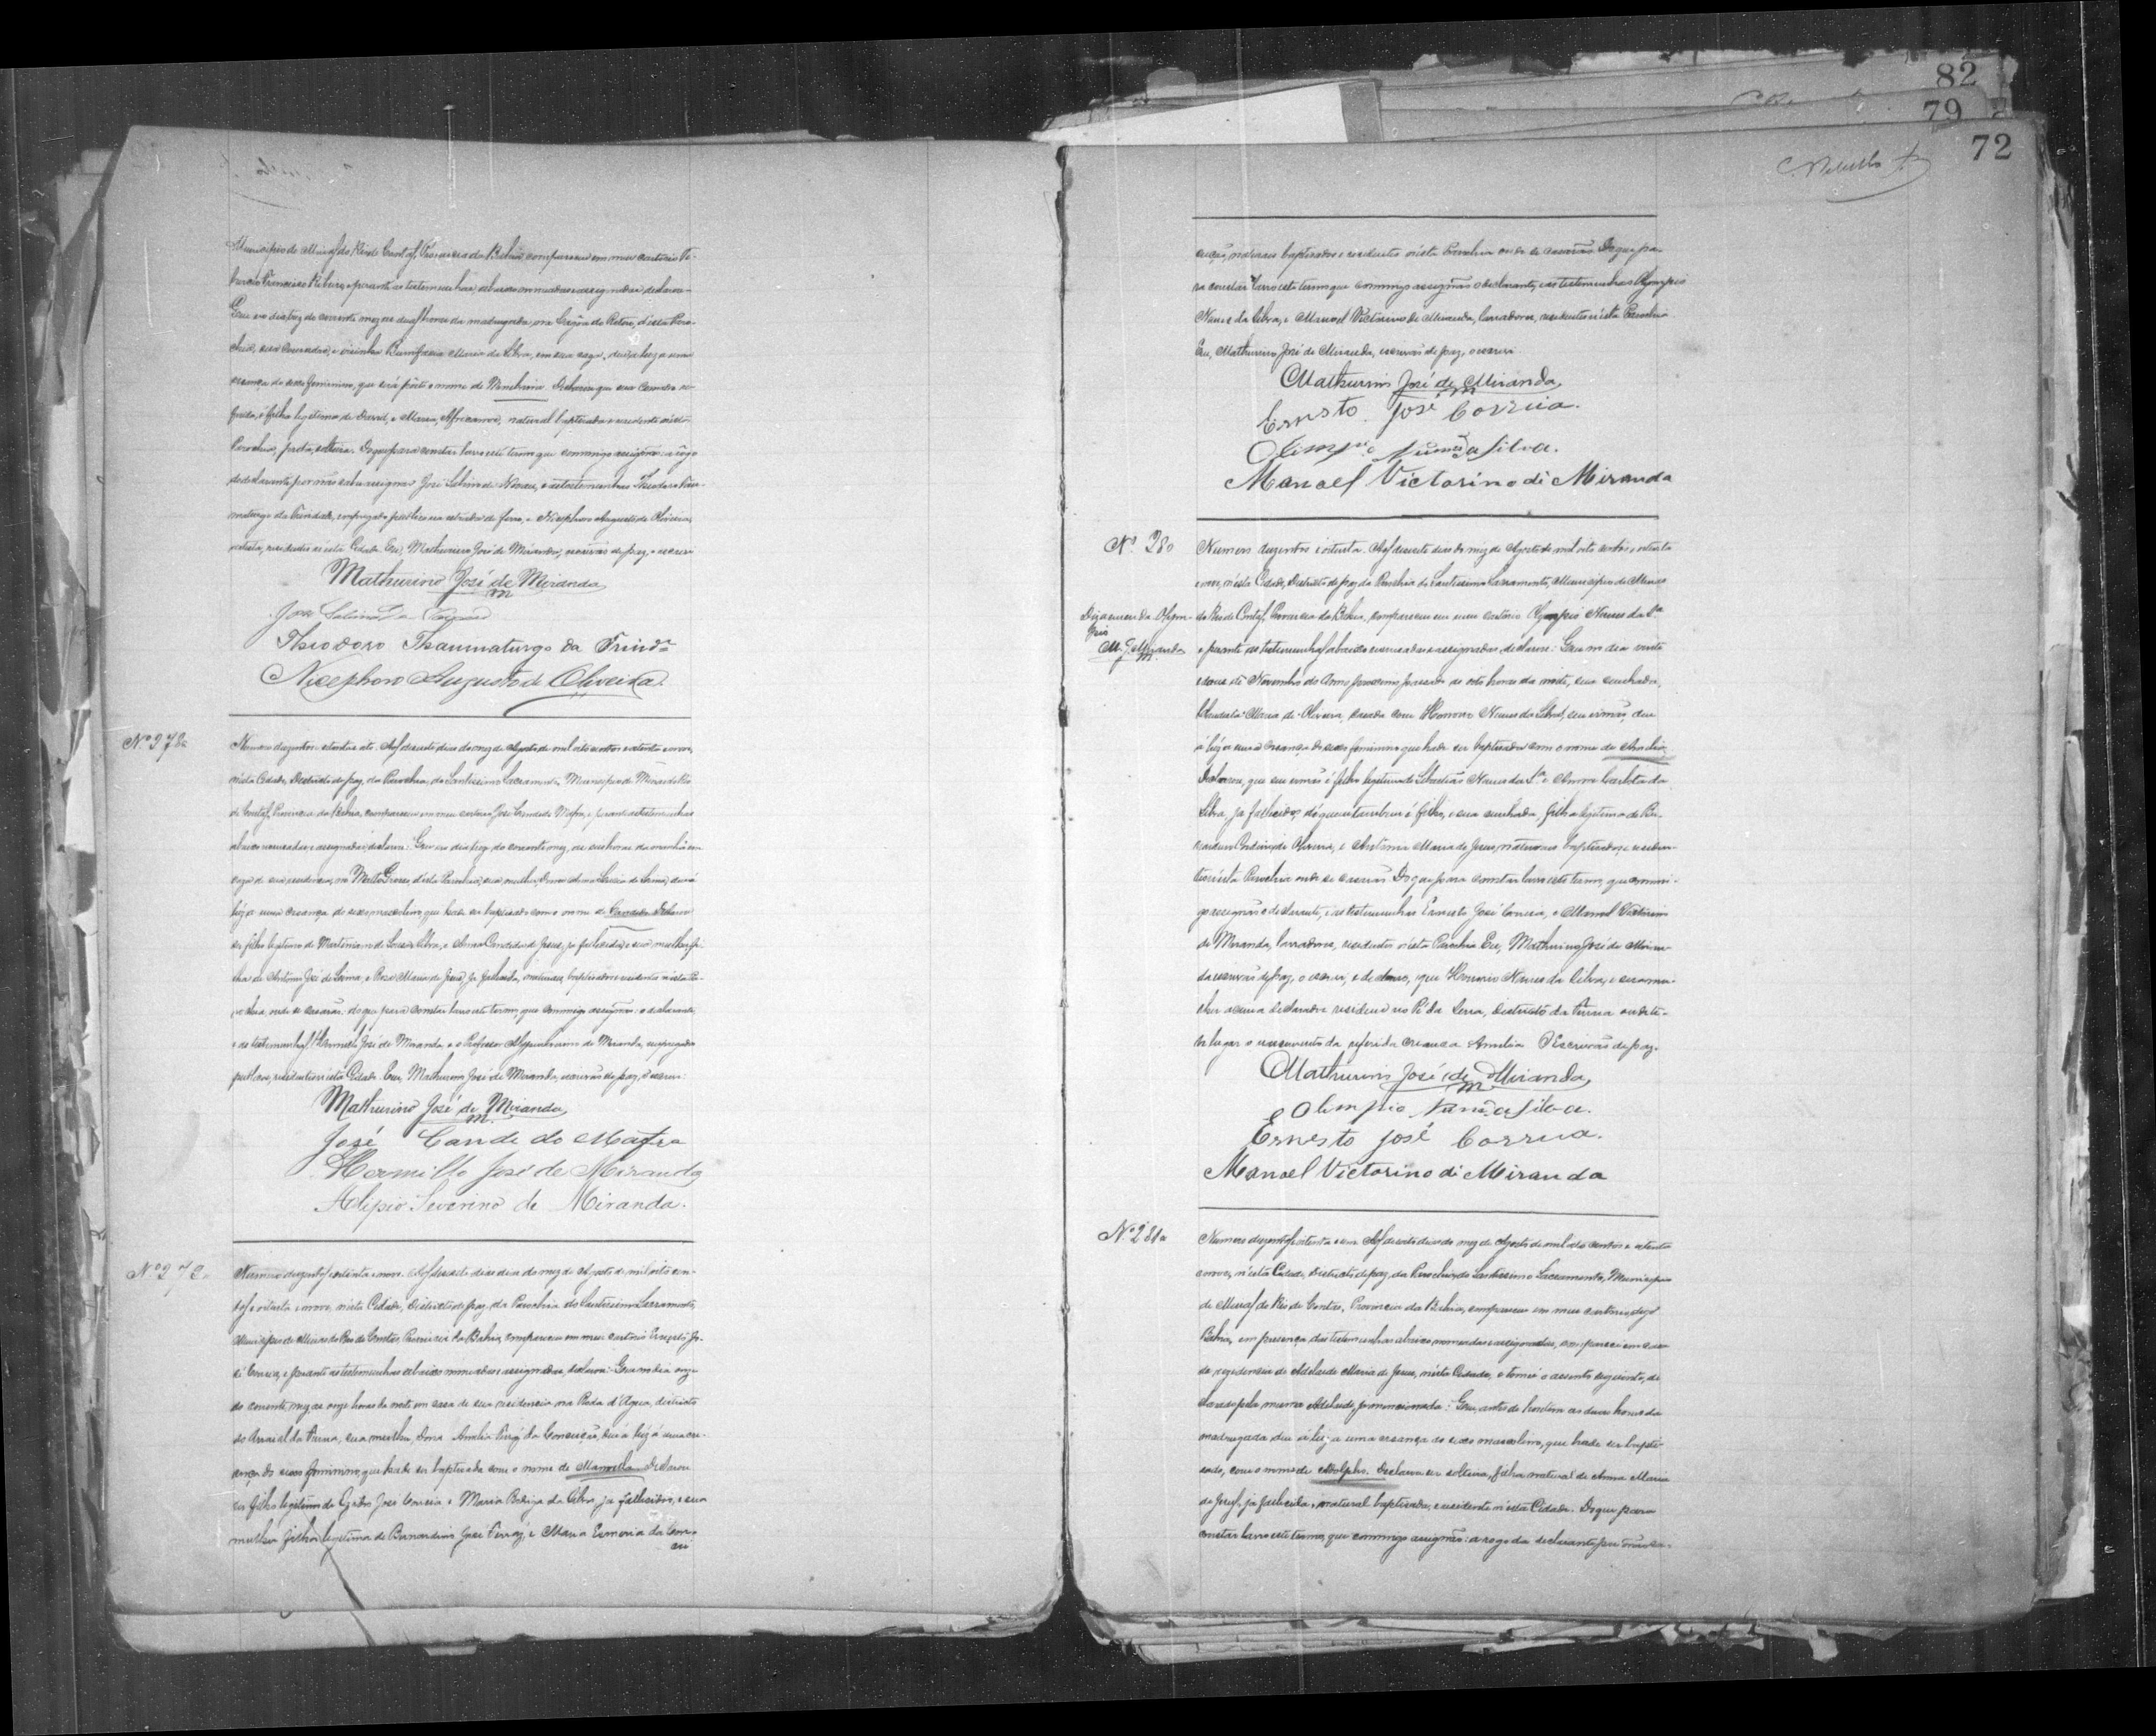 Municipio de Minas do Rio de Contas, Provincia da Bahia, compareceu em meu cartorio Ti-
burcio Francisco Ribeiro, e perante as testemunhas abaixo nomeadas e assignadas declarou:
Que no dia trez do corrente mez as duas horas da madrugada, no desta Paro-
chia, sua e visinha Bonifacia Maria da Silva, em sua caza, deu a luz a uma
creança do sexo feminino, que será o nome de Declarou que sua
filha legitima de David, e Maria, Africanos, natural baptisada e residente nesta
Parochia, preta, solteira. Do que para constar lavro este termo que commigo assignão: a rogo
do declarante, por não saber assignar José e as testemunhas Theodoro Thau-
maturgo da Trindade, empregado publico na estrada de ferro, e Nicephoro Augusto de Oliveira,
artista, residentes n'esta Cidade. Eu, Mathurino José de Miranda, escrivão de paz, o escrevi
Mathurino José de Miranda
José
Theodoro Thaumaturgo da Trind.e
Nicephoro Augusto de Oliveira
Nº 278.
Numero duzentos setenta e oito. Aos desesete dias do mez de Agosto de mil oito centos e oitenta e nove,
n'esta Cidade, Districto de paz, da Parochia do Santissimo Sacramento, Municipio de Minas do Rio
de Contas, Provincia da Bahia, compareceu em meu cartorio José Candido Mafra, e perante as testemunhas
abaixo nomeadas e assignadas, declarou: Que no dia do corrente mez, as seis horas da manhã em
caza de sua residencia, no Matto Grosso, d'esta Parochia, sua mulher, Dona de Lima, deu á
luz a uma creança do sexo masculino, que hade ser baptisado com o nome de Candido. Declarou
ser filho legitimo de Martiniano de Souza Silva, e Anna Candida de Jesus, ja fallecida, e sua mulher fi-
lha de Antonio José de Lima, e Rosa Maria de Jesus, ja fallecida, naturaes, baptisados e residentes n'esta Pa-
rochia, onde se casarão: do que para constar lavro este termo, que commigo assignão: o declarante,
e as testemunhas Hermillo José de Miranda e o Professor Alipio Severino de Miranda, empregados
publicos, residentes n'esta Cidade. Eu, Mathurino José de Miranda, escrivão de paz, o escrevi:
Mathurino José de Miranda
José Candido Mafra
Hermillo José de Miranda
Alipio Severino de Miranda.
Nº 279.
Numero duzentos setenta e nove. Aos desesete dias do mez de Agosto de mil oito cen-
tos e oitenta e nove, nesta Cidade, Districto de paz, da Parochia do Santissimo Sacramento,
Municipio de Minas do Rio de Contas, Provincia da Bahia, compareceu em meu cartorio Ernesto Jo-
sé Correia, e perante as testemunhas abaixo nomeadas e assignadas declarou: Que no dia onze
do corrente mez, as onze horas da noite em casa de sua residencia na d'Agua, districto
do Arraial da Furna, sua mulher, Dona Amelia Ferraz da Conceição, deu á luz á uma cre-
ança do sexo feminino, que hade ser baptisada com o nome de Manuela. Declarou
ser filho legitimo de José Correia e Maria da Silva, ja fallecidos, e sua
mulher filha legitima de Bernardino José Ferraz, e Maria da Con-
cei
82
79
72
ceição, naturaes baptisados e residentes n'esta Parochia onde se casarão. Do que pa-
ra constar lavro este termo que commigo assignão o declarante, e as testemunhas Olympio
Nunes da Silva, e Manoel Victorino de Miranda, lavradores, residentes n'esta Parochia
Eu, Mathurino José de Miranda, escrivão de paz, o escrevi
Mathurino José de Miranda,
Ernesto José Correia.
Olimpio Nunes da Silva.
Manoel Victorino di Miranda
Nº 280
Numero duzentos e oitenta. Aos desesete dias do mez de Agosto de mil oito centos e oitenta
e nove, n'esta Cidade, Districto de paz, da Parochia do Santissimo Sacramento, Municipio de Minas
do Rio de Contas, Provincia da Bahia, compareceu em meu cartorio Olympio Nunes da S.a
e perante as testemunhas abaixo nomeadas e assignadas, declarou: Que no dia vinte
e nove de Novembro do anno proximo passado as oito horas da noite, sua cunhada,
Maria de Oliveira, casada com Honorio Nunes da Silva, seu irmão, deu
á luz a uma creança do sexo feminino que hade ser baptisada com o nome de Amelia.
Declarou, que seu irmão é filho legitimo de Sebastião Nunes da S.a e Anna Carlota da
Silva, ja fallecidos, de quem tambem é filho, e sua cunhada, filha legitima de
de Oliveira, e Antonia Maria de Jesus, naturaes baptisados, e residen-
tes n'esta Parochia onde se casarão. Do que para constar lavro este termo, que commi-
go assignão o declarante, e as testemunhas Ernesto José Correia, e Manoel Victorino
de Miranda, lavradores, residentes n'esta Parochia. Eu, Mathurino José de Miran-
da escrivão de paz, o escrevi, e declaro, que Honorio Nunes da Silva, e sua mu-
lher acima declarados residem no Pé da Serra, districto da Furna onde te-
ve lugar o nascimento da referida creança Amelia O Escrivão de paz.
Mathurino José de Miranda,
Olimpio Nunes da Silva.
Ernesto José Correia.
Manoel Victorino di Miranda
Digo emenda Olym-
pio
M. J. Miranda
Nº 281.
Numero duzentos oitenta e um. Aos desesete dias do mez de Agosto de mil oito centos e oitenta
e nove, n'esta Cidade, Districto de paz, da Parochia do Santissimo Sacramento, Municipio
de Minas do Rio de Contas, Provincia da Bahia, compareceu em meu cartorio digo
Bahia, em presença das testemunhas abaixo nomeadas e assignadas, compareci em casa
de residencia de Adelaide Maria de Jesus, nesta Cidade, e tomei o assento seguinte, de-
clarado pela mesma Adelaide, ja mencionada: Que, antes de hontem as duas horas da
madrugada deu á luz a uma creança do sexo masculino, que hade ser bapti-
sado, com o nome de Adolpho. Declarou ser solteira, filha natural de Anna Maria
de Jesus, ja fallecida, natural baptisada, e residente n'esta Cidade. Do que para
constar lavro este termo, que commigo assignão: a rogo da declarante por não sa-